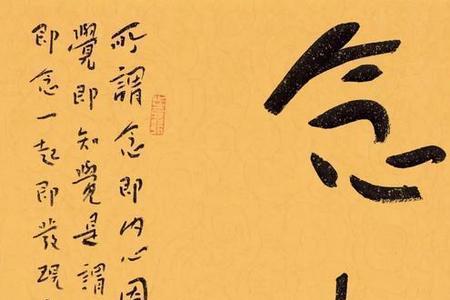 念
所謂念即内心因
覺即知覺是謂
即念一起即發現